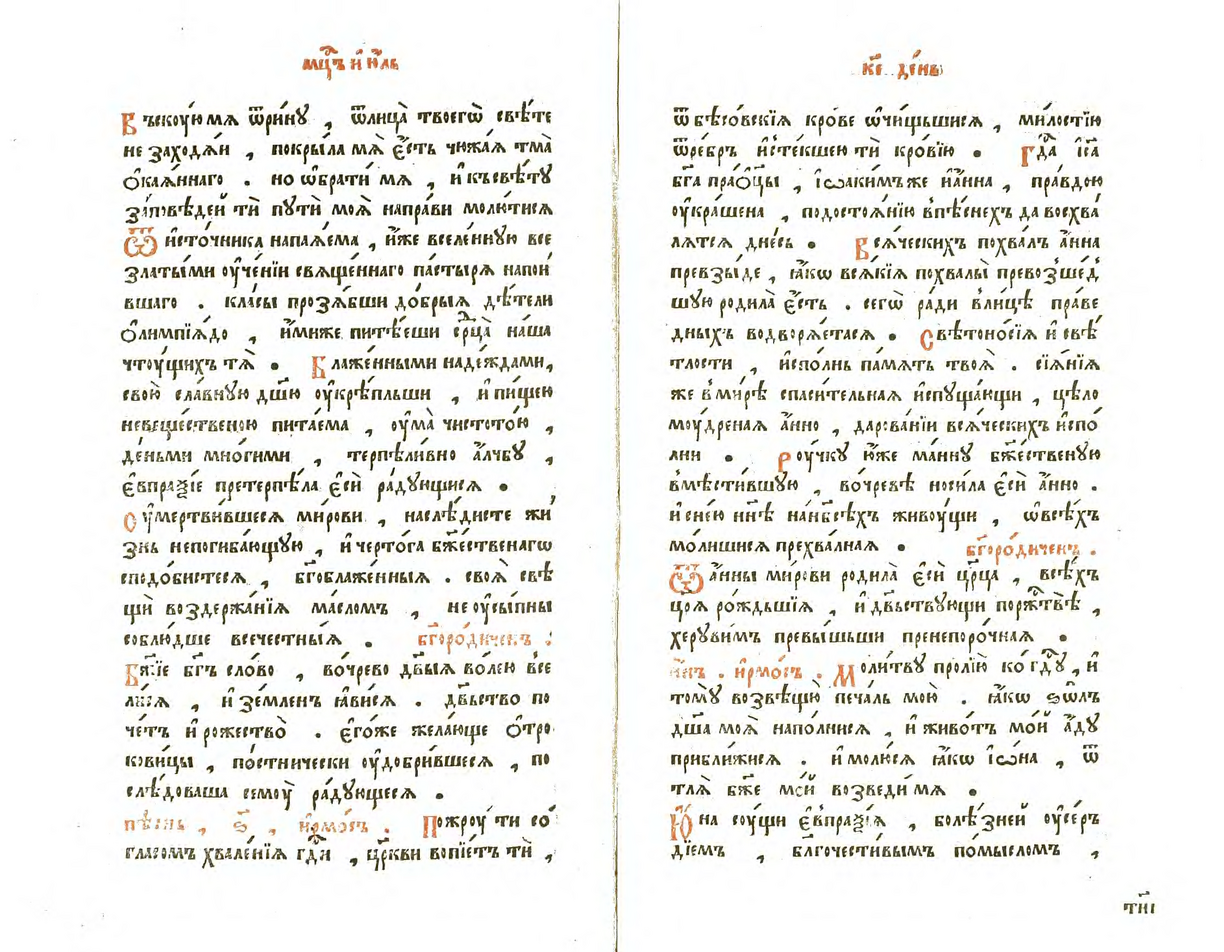 мц҃ъ и҆ ю҆́ль
Въскоую мѧ ѿри́нꙋ , ѿлица̀ твоегѡ̀ свѣ́те
не заходѧ́и , покрыла мѧ̀ є҆́сть чюжа́ѧ тма̀
ѻ҆каѧ́ннаго . но ѡ҆брати́ мѧ , и҆ къ свѣ́тꙋ
за́повѣдеи тѝ пꙋти̑ моѧ̀ напра́ви молю́тисѧ
Ѿ и҆сто́чника напаѧ́ема , и҆́же вселе́ннꙋю все
златы́ми оу҆че́нїи свѧще́ннаго па́стырѧ напои
вшаго . кла́сы прозѧ́бши до́брыѧ дѣ́тели
ѻ҆лимпїѧ́до , и҆́миже питѣ́еши срⷣца̀ на́ша
чтоу́щихъ тѧ̀ . Блаже́нными наде́ждами,
свою̀ сла́внꙋю дш҃ю оу҆крѣ́пльши , и҆ пи́щею
невеще́ственою пита́ема , оу҆ма̀ чистото́ю ,
де́ньми мно́гими , терпѣли́вно а҆́лчбꙋ ,
є҆ѵпраѯі́е претерпѣ́ла є҆сѝ ра́дꙋющисѧ .
Оу҆мертви́вшесѧ ми́рови , наслѣ́дисте жи́
знь непогиба́ющꙋю , и҆ черто́га бж҃е́ственагѡ
сподо́бистесѧ , бг҃облаже́нныѧ . своѧ̀ свѣ
щѝ воздержа́нїѧ ма́сломъ , не оу҆сы́пны
соблю́дше всече́стныѧ . бг҃оро́диченъ .
Бл҃же бг҃ъ сло́во , во́чрево дв҃ыѧ во́лею все
ли́сѧ , и҆ зе́мленъ ꙗ҆ви́сѧ . дв҃ьство по
че́тъ и҆ рожество̀ . є҆го́же жела́юще ѻ҆тро
кови́цы , по́стнически оу҆добри́вшесѧ , по
слѣ́доваша семоу̀ ра́дꙋющесѧ .
пѣ́снь , ѕ҃ , и҆рмо́съ . Пожроу́ ти со́
гласомъ хвале́нїѧ гдⷭ҇и , цр҃кви вопїе́тъ тѝ ,
ке҃ де́нь
ѿ бѣсо́вскїѧ кро́ве ѡ҆чи́щьшисѧ , ми́лостїю
ѿре́бръ и҆сте́кшею тѝ кро́вїю . Гдⷭ҇а і҆с҃а
бг҃а праѻ҆цы̀ , і҆ѡаки́мъже и҆ а҆́нна , пра́вдою
оу҆кра́шена , подостоѧ́нїю впѣ́снехъ да восхва́
лѧтсѧ дне́сь . Всѧ́ческихъ похва́лъ а҆́нна
превзы́де , ꙗ҆́кѡ всѧ́кїѧ похвалы̀ превозше́д
шꙋю родила̀ є҆́сть . сегѡ̀ ра́ди вли́цѣ пра́ве
дныхъ водворѧ́етасѧ . Свѣтоно́сїѧ и҆ свѣ́
тлости , и҆спо́лнь па́мѧть твоѧ̀ . сїѧ́нїѧ
же вми́рѣ спаси́тельная и҆спꙋща́ющи , цѣ́ло
моу́дренаѧ а҆́нно , дарова́нїи всѧ́ческихъ и҆спо́
лни . Роу́чкꙋ ю҆́же ма́ннꙋ бж҃е́ственꙋю
вмѣсти́вшꙋю , во́чревѣ носи́ла є҆сѝ а҆́нно .
и҆ сне́ю нн҃ѣ на нб҃сѣ́хъ живоу́щи , ѡ҆ всѣ́хъ
мо́лишисѧ прехва́лнаѧ . бг҃оро́диченъ .
Ѿ а҆́нны ми́рови родила̀ є҆сѝ цр҃ца , всѣ́хъ
цр҃ѧ ро́ждьшїѧ , и҆ дв҃ьствꙋющи порⷤ҇твѣ́ ,
херꙋви́мъ превы́шьши пренепоро́чнаѧ .
и҆́нъ . и҆рмо́съ . Моли́твꙋ пролїю̀ ко гдⷭ҇ꙋ , и҆
томꙋ̀ возвѣщꙋ̀ печа́ль мою̀ . ꙗ҆́кѡ ѕѡ́лъ
дш҃а моѧ̀ напо́лнисѧ , и҆ живо́тъ мо́й а҆́дꙋ
прибли́жисѧ . и҆ молю́сѧ ꙗ҆́кѡ і҆ѡ́на , ѿ
тлѧ̀ бж҃е мо́й возведи́ мѧ .
Ю҆на соу́щи є҆ѵпраѯі́ѧ , болѣ́зней оу҆се́р
дїемъ , бл҃гочести́вымъ по́мысломъ ,
тн҃і